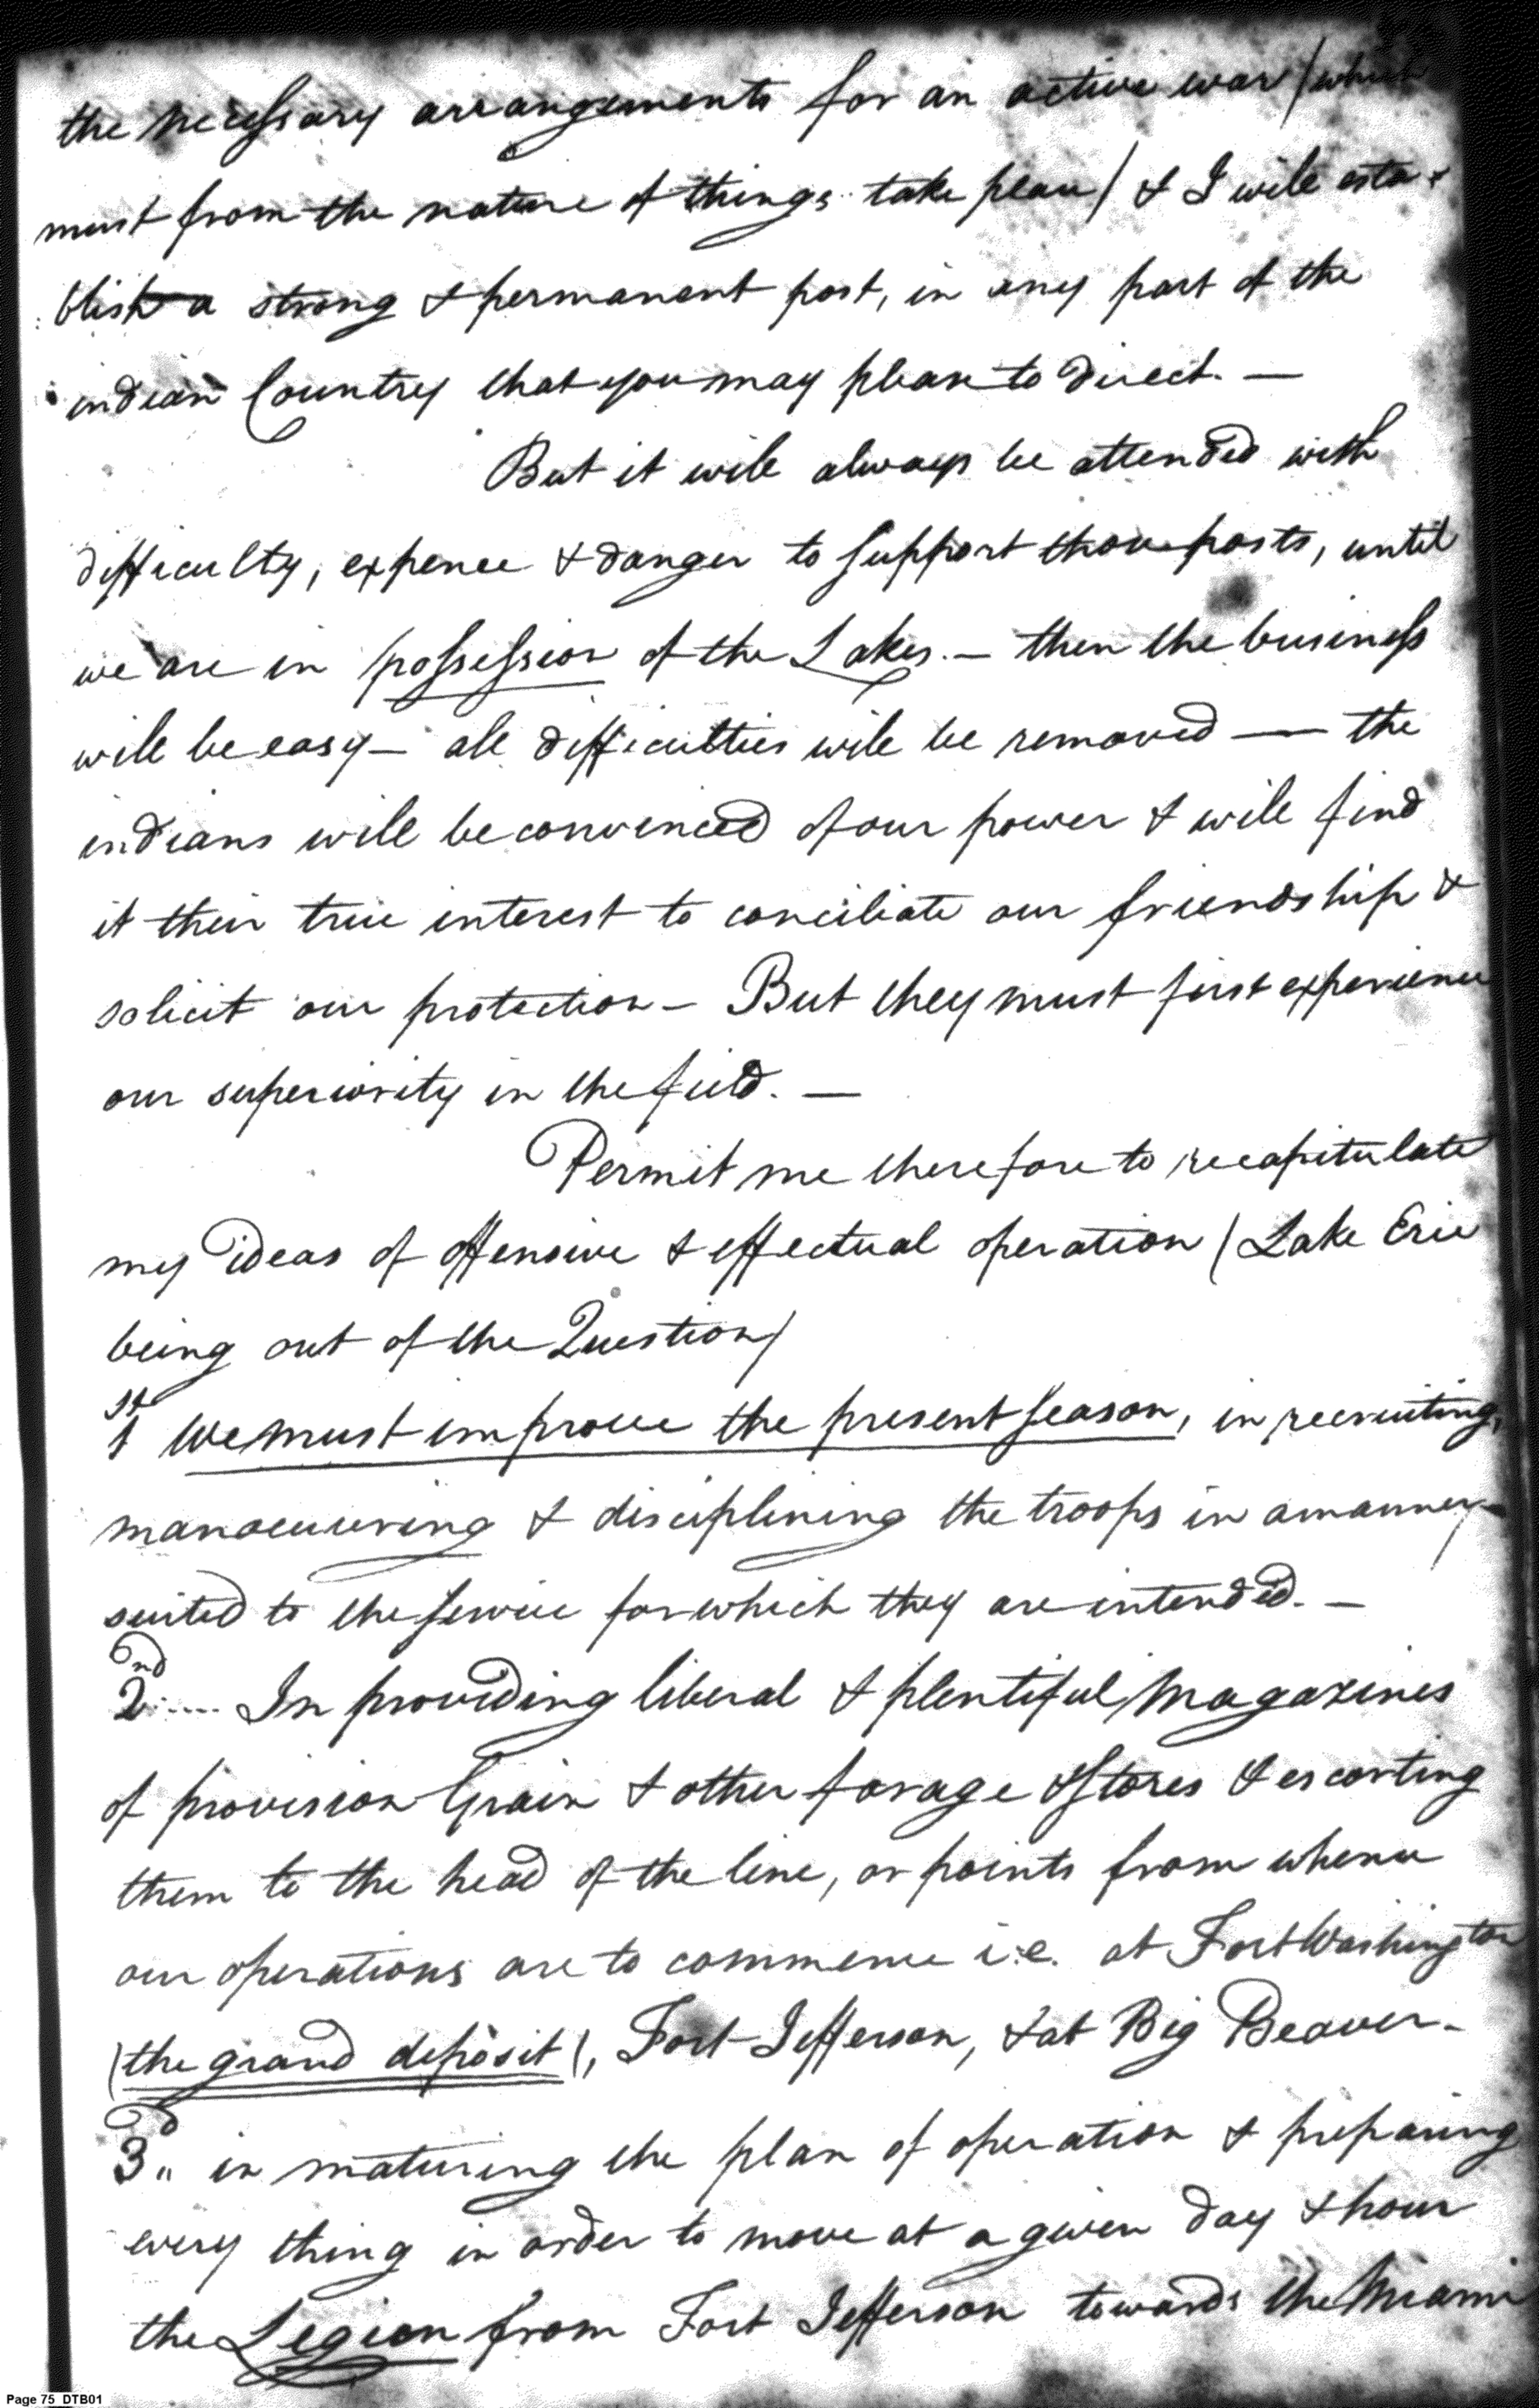 the necessary arrangements for an active war (which
must from the nature of things take place) & I will esta-
blish a strong & permanent post, in any part of the
indian Country that you may please to direct. —
But it will always be attended with
difficulty, expence & danger to support those posts, until
we are in possession of the Lakes. — then the business
will be easy — all difficulties will be removed — the
indians will be convinced of our power & will find
it their true interest to conciliate our friendship &
solicit our protection — But they must first experience
our superiority in the field. —
Permit me therefore to recapitulate
my ideas of offensive & effectual operation (Lake Erie
being out of the Question)
1st We must improve the present season, in recruiting,
manoeuvering & disciplining the troops in a manner
suited to the service for which they are intended. —
2nd .... In providing liberal & plentiful Magazines
of provision Grain & other forage & Stores & escorting
them to the head of the line, or points from whence
our operations are to commence i.e. at Fort Washington
(the grand deposit), Fort Jefferson, & at Big Beaver —
3d" in maturing the plan of operation & preparing
every thing in order to move at a given day & hour
the Legion from Fort Jefferson towards the Miami
Page 75 DTB01